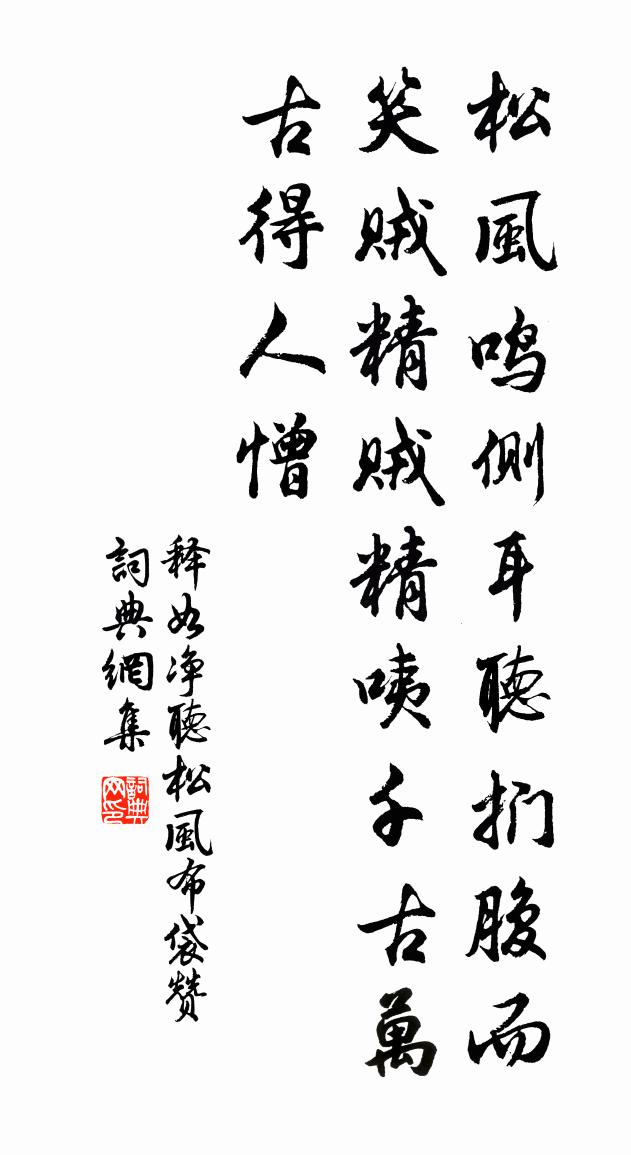 松風鸣側耳聽捫腹而
笑贼精贼精咦千古萬
古得人憎
释如净聽松風布袋赞
詞典網集
詞典网印